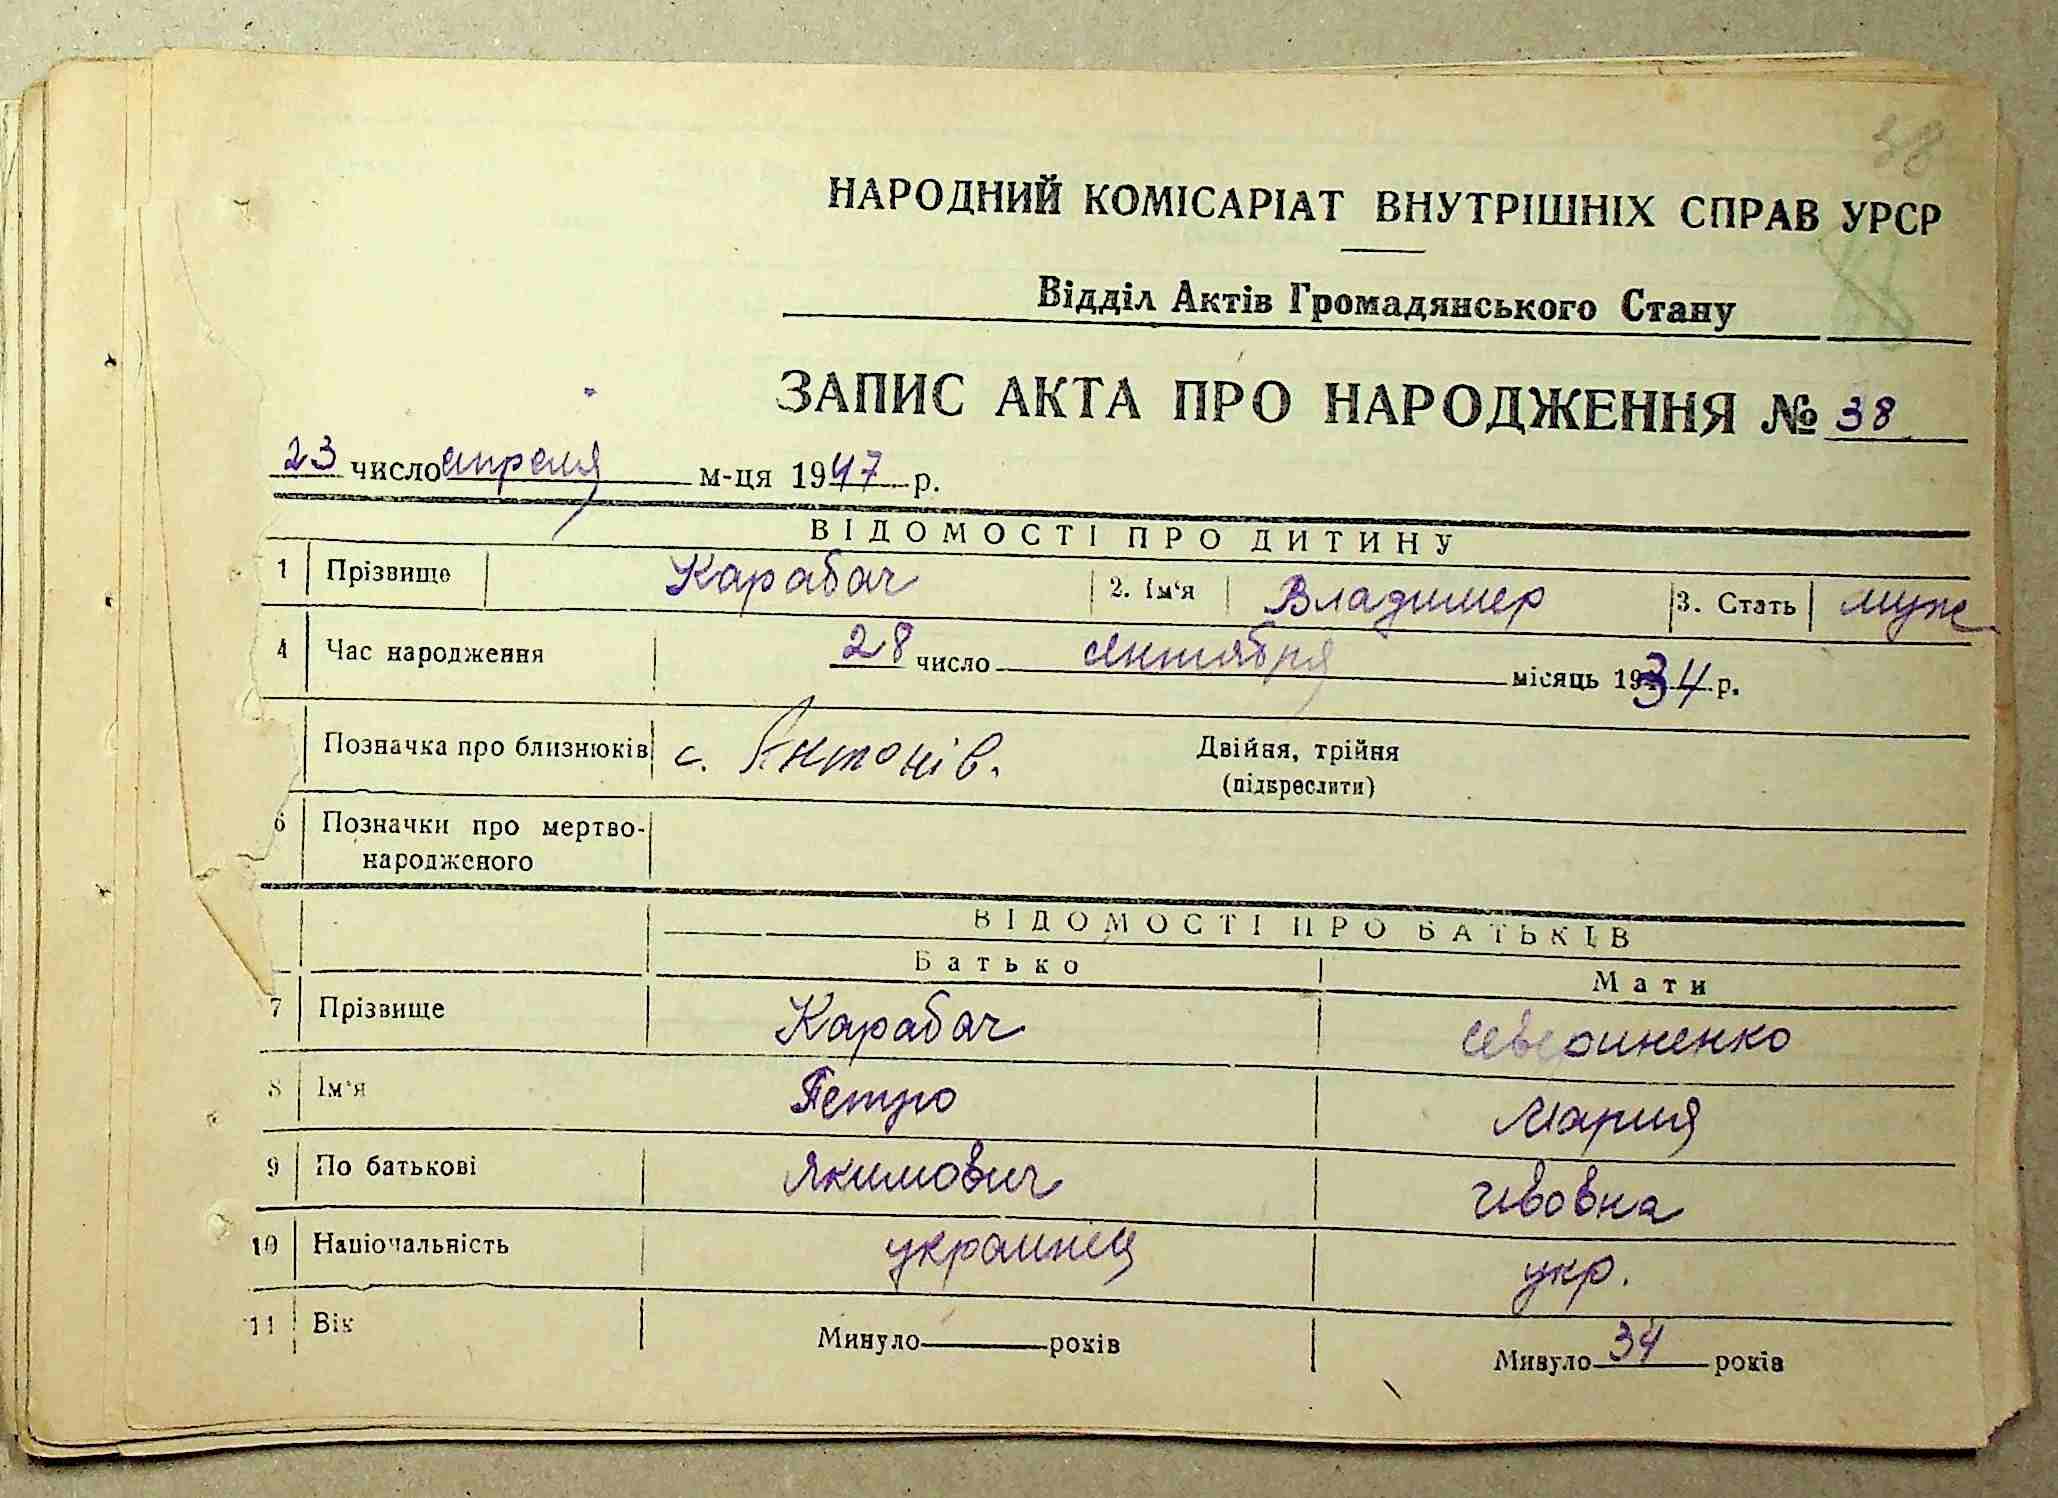 38
НАРОДНИЙ КОМІСАРІАТ ВНУТРІШНІХ СПРАВ УРСР
Відділ Актів Громадянського Стану
ЗАПИС АКТА ПРО НАРОДЖЕННЯ № 38
23 число апреля м-ця 1947 р.
ВІДОМОСТІ ПРО ДИТИНУ
1 Прізвище Карабач 2. Ім‘я Владимер 3. Стать муж
4 Час народження 28 число сентября місяць 1934 р.
Позначка про близнюків с. Антонів. Двійня, трійня
(підкреслити)
6 Позначки про мертво-
народженого
ВІДОМОСТІ ПРО БАТЬКІВ
Батько Мати
7 Прізвище Карабач Севериненко
8 Ім‘я Петро Мария
9 По батькові Якимович Ивовна
10 Національність украинец укр.
11 Вік Минуло років Минуло 34 років